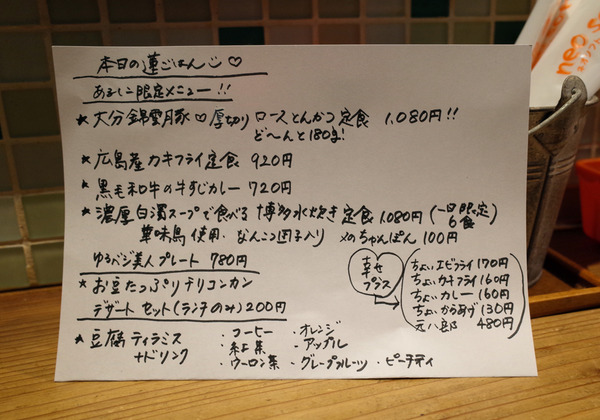 本日の蓮ごはん ♡
限定メニュー!!
★大分錦雲豚♡厚切りロースとんかつ定食 1,080円!!
ど〜んと180g!
★広島産カキフライ定食 920円
★黒毛和牛の牛すじカレー 720円
★濃厚白濁スープで食べる博多水炊き定食 1,080円(一日限定6食)
華味鳥使用、なんこつ団子入り 〆のちゃんぽん 100円
ゆるベジ美人プレート 780円
★お豆たっぷりチリコンカン
デザートセット(ランチのみ)200円
★豆腐ティラミス
+ドリンク
・コーヒー ・オレンジ
・紅茶 ・アップル
・ウーロン茶 ・グレープフルーツ ・ピーチティ
幸せプラス
ちょいエビフライ 170円
ちょいカキフライ 160円
ちょいカレー 160円
ちょいからあげ 130円
480円